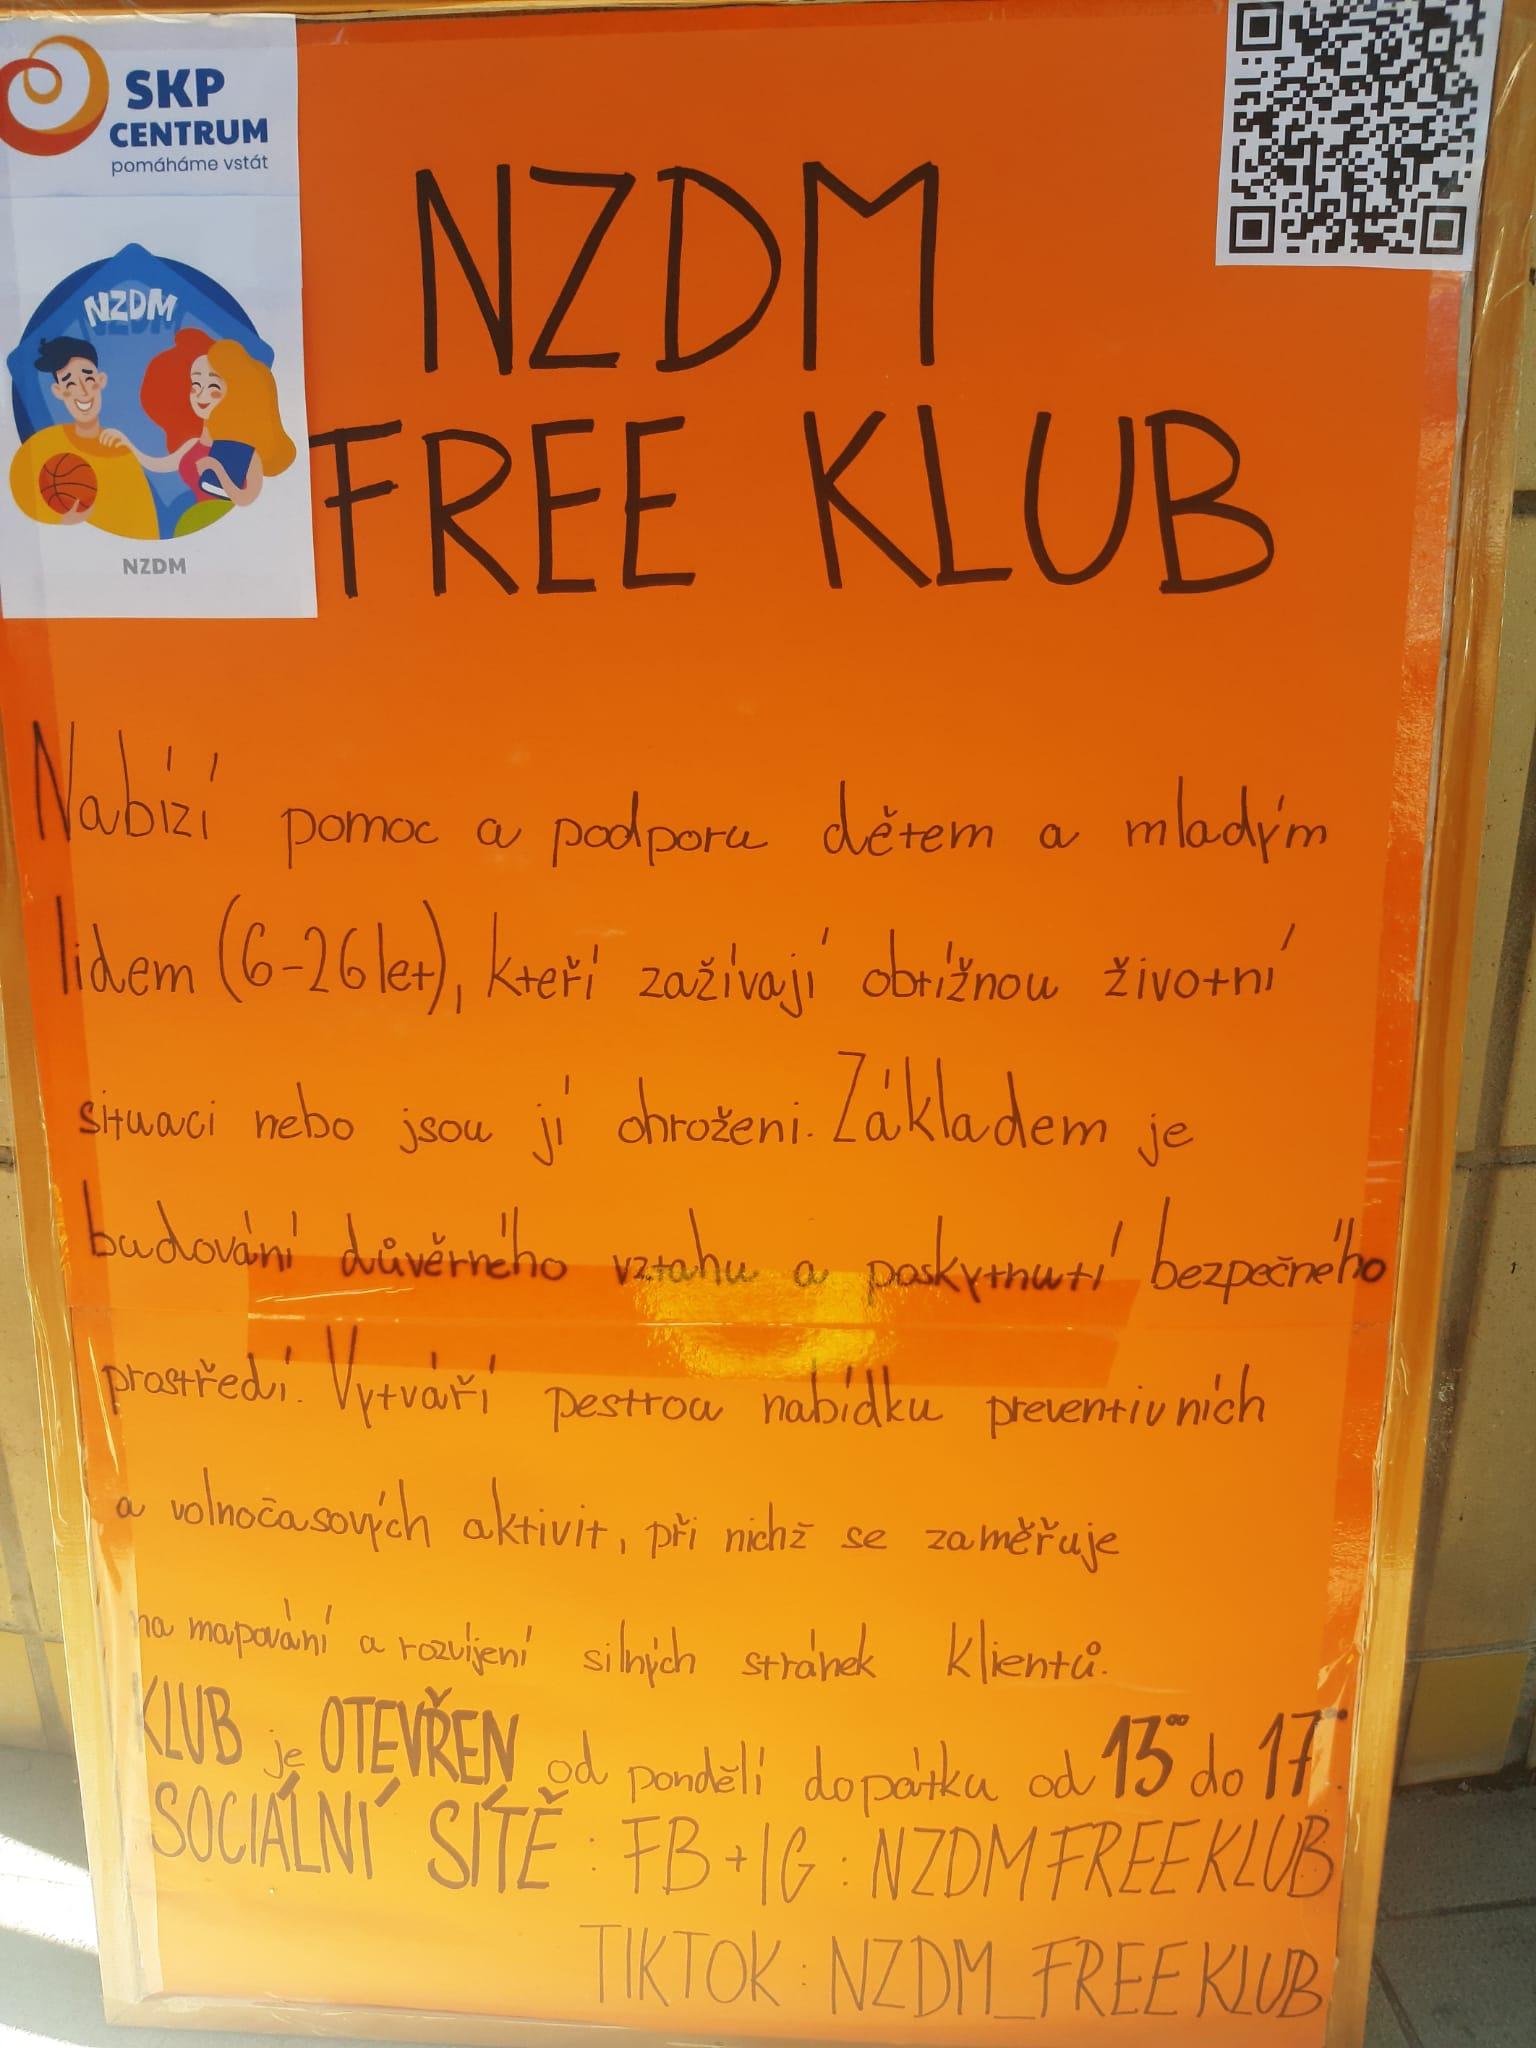 SKP
CENTRUM
pomáháme vstát
NZDM
NZDM
NZDM
FREE KLUB
Nabízí pomoc a podporu dětem a mladým
lidem (6-26 let), kteří zažívají obtížnou životní
situaci nebo jsou jí ohroženi. Základem je
budování důvěrného vztahu a poskytnutí bezpečného
prostředí. Vytváří pestrou nabídku preventivních
a volnočasových aktivit, při nichž se zaměřuje
na mapování a rozvíjení silných stránek klientů.
KLUB je OTEVŘEN od pondělí do pátku od 13⁰⁰ do 17⁰⁰.
SOCIÁLNÍ SÍTĚ: FB+IG: NZDM FREE KLUB
TIKTOK: NZDM_FREE KLUB